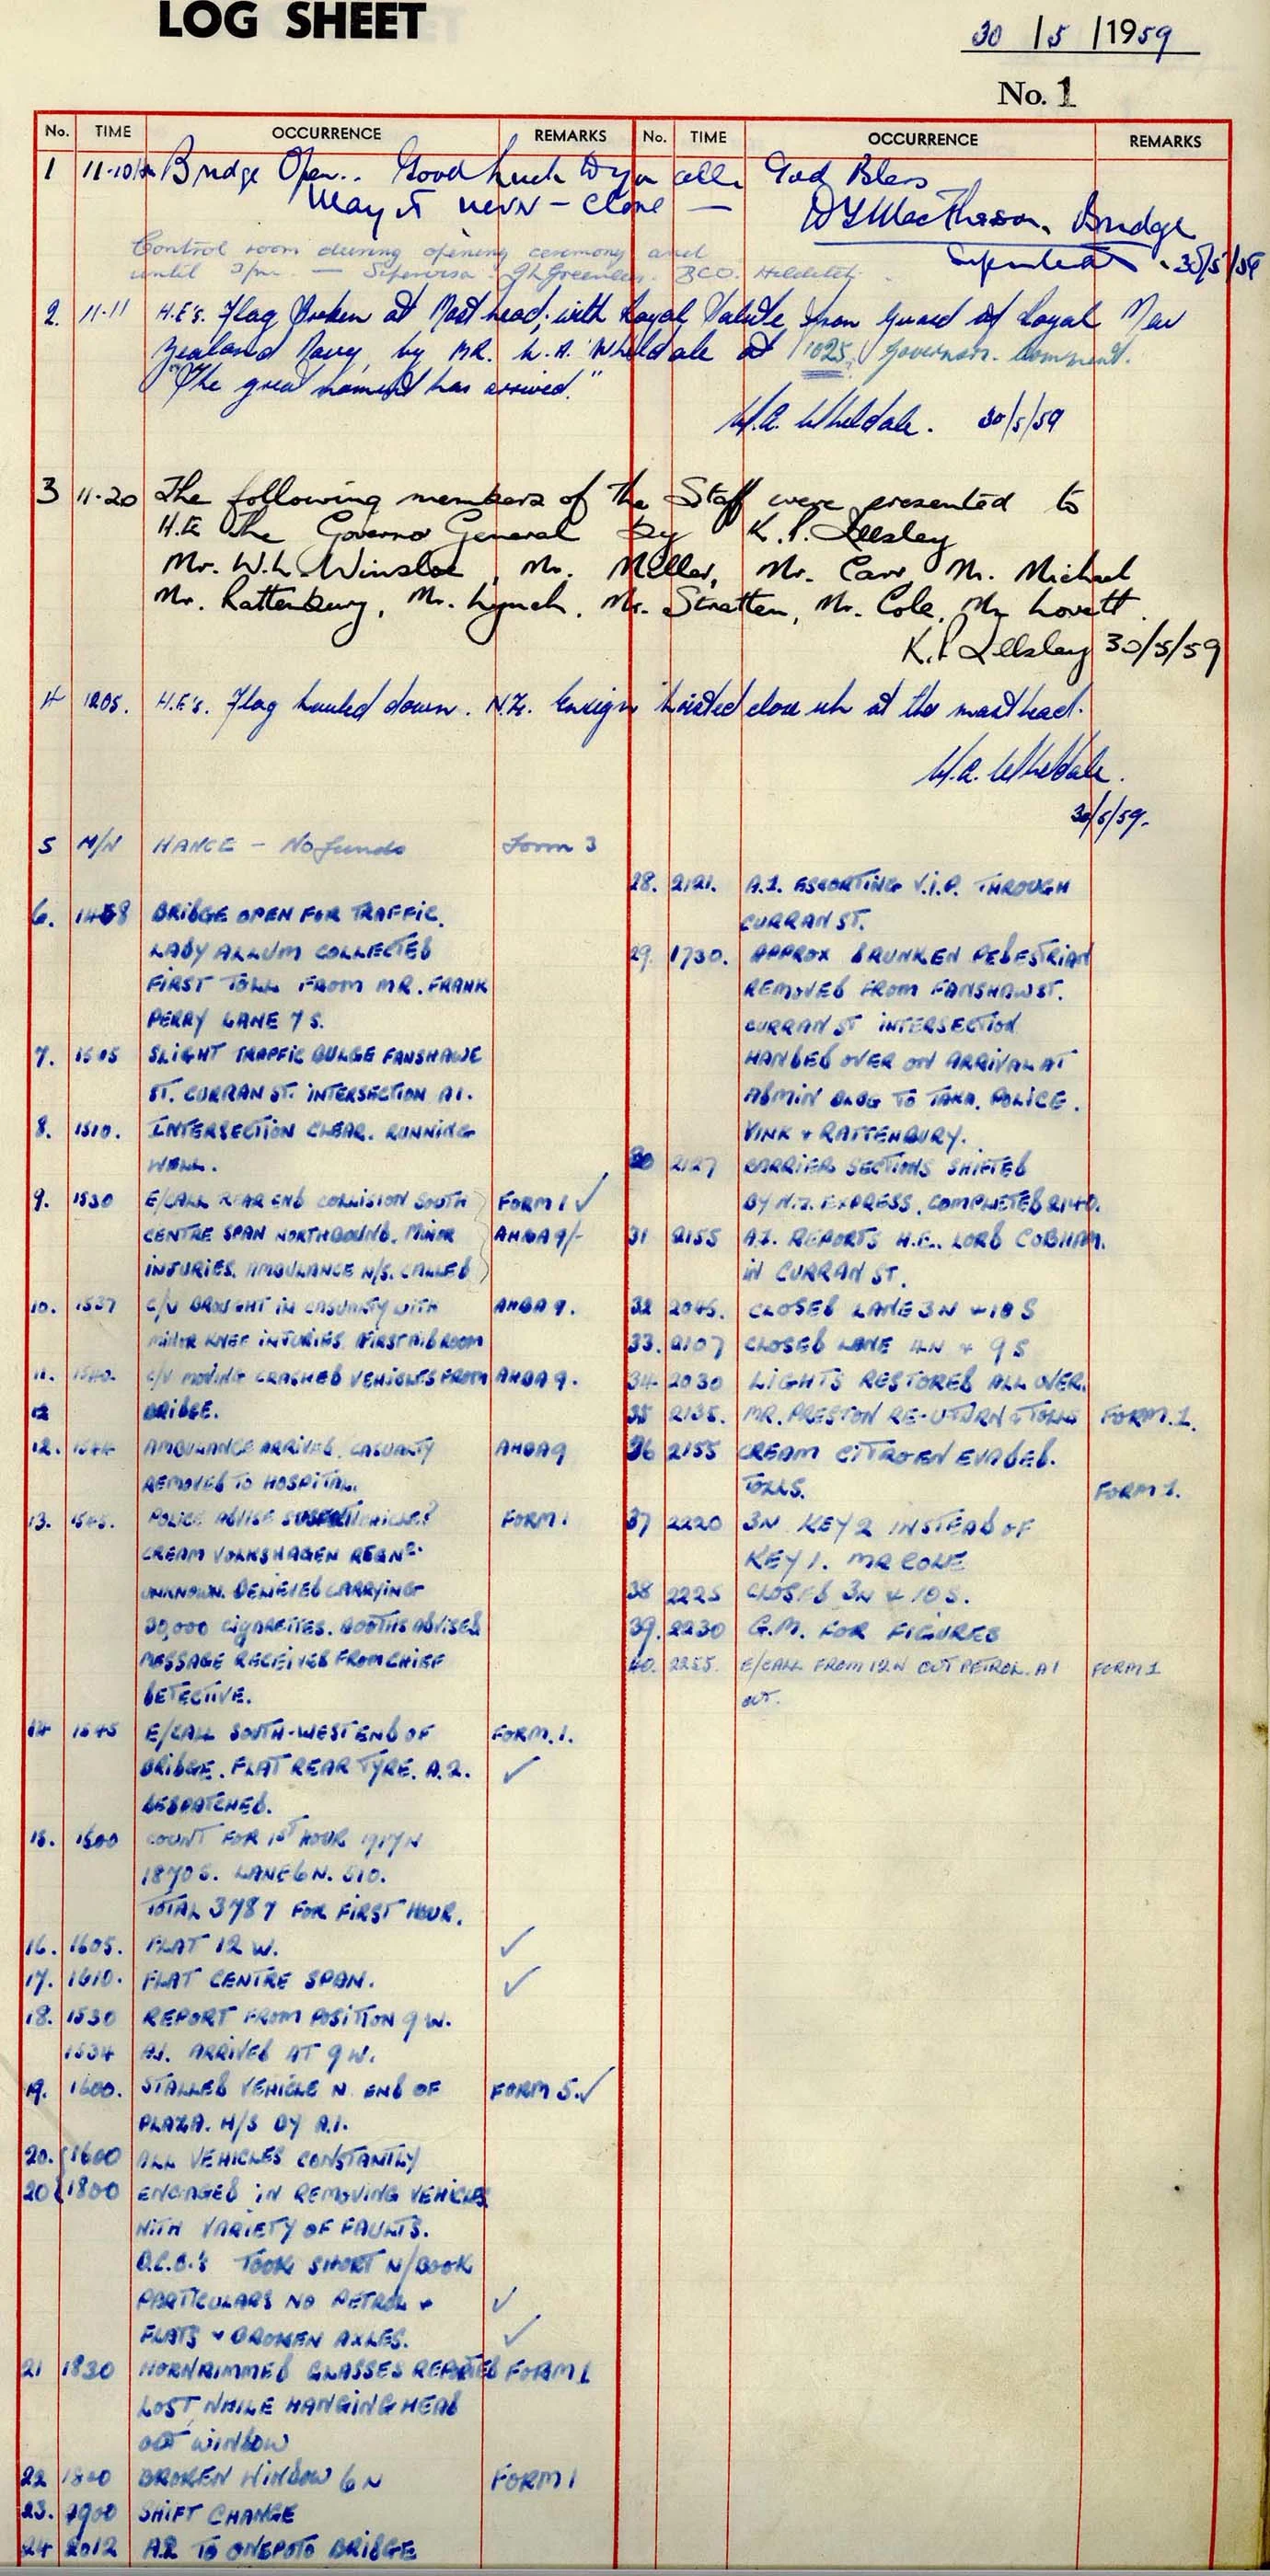 LOG SHEET
30 / 5 / 1959
No. 1
No. TIME OCCURRENCE REMARKS No. TIME OCCURRENCE REMARKS
1 11-10 Bridge Open.. Good Luck to you all. God Bless
May it never - close —
Bridge
30/5/59
Control room during opening ceremony and
until 3pm. —
2. 11-11 H.E's. Flag Broken at Mast head, with Royal Salute from Guard of Royal New
Zealand Navy, by MR. W.A. Wheldale at 1025. Governors. Comment.
"The great moment has arrived."
W.A. Wheldale. 30/5/59
3 11-20 The following members of the Staff were presented to
H.E The Governor General by K.P.
Mr. W.L. Winsloe, Mr. Miller, Mr. Carr, Mr. Michael
Mr. Rattenbury, Mr. Lynch, Mr. Stratten, Mr. Cole, Mr Lovett.
K.P. 30/5/59
4 1205. H.E's. Flag hauled down. N.Z. Ensign hoisted close up at the masthead.
W.A. Wheldale.
30/5/59.
5 HANCE - No funds Form 3
6. 1458 BRIDGE OPEN FOR TRAFFIC.
LADY ALLUM COLLECTED
FIRST TOLL FROM MR. FRANK
PERRY LANE 7 S.
7. 1505 SLIGHT TRAFFIC BULGE FANSHAWE
ST. CURRAN ST. INTERSECTION A1.
8. 1510. INTERSECTION CLEAR. RUNNING
WELL.
9. 1530 E/CALL REAR END COLLISION SOUTH FORM 1 ✓
CENTRE SPAN NORTHBOUND. MINOR AHBA 9/-
INJURIES. AMBULANCE N/S. CALLED
10. 1537 C/V BROUGHT IN CASUALTY WITH AHBA 9.
MINOR KNEE INJURIES FIRST AID ROOM
11. 1540. C/V MOVING CRASHED VEHICLES FROM AHBA 9.
12 BRIDGE.
12. 1544 AMBULANCE ARRIVED. CASUALTY AHBA 9
REMOVED TO HOSPITAL.
13. 1545. POLICE ADVISE SUSPECT VEHICLE? FORM 1
CREAM VOLKSWAGEN REGN?
UNKNOWN. BELIEVED CARRYING
30,000 CIGARETTES. BOOTHS ADVISED
MESSAGE RECEIVED FROM CHIEF
DETECTIVE.
14 1545 E/CALL SOUTH-WEST END OF FORM. 1.
BRIDGE. FLAT REAR TYRE. A.2. ✓
DESPATCHED.
15. 1600 COUNT FOR 1ST HOUR 1917 N
1870 S. LANE 6 N. 510.
TOTAL 3787 FOR FIRST HOUR.
16. 1605. FLAT 12 W. ✓
17. 1610. FLAT CENTRE SPAN. ✓
18. 1530 REPORT FROM POSITION 9 W.
1534 A1. ARRIVED AT 9 W.
19. 1600. STALLED VEHICLE N. END OF FORM 5. ✓
PLAZA. H/S BY A.1.
20. 1600 ALL VEHICLES CONSTANTLY
20 1800 ENGAGED IN REMOVING VEHICLES
WITH VARIETY OF FAULTS.
B.C.O.'s TOOK SHORT N/BOOK
PARTICULARS NO PETROL + ✓
FLATS + BROKEN AXLES. ✓
21 1830 HORNRIMMED GLASSES REPORTED FORM 1
LOST, WHILE HANGING HEAD
OUT WINDOW
22 BROKEN WINDOW 6 N FORM 1
23. 1900 SHIFT CHANGE
24 2012 A.2 TO ONEPOTO BRIDGE
28. 2121. A.1. ESCORTING V.I.P. THROUGH
CURRAN ST.
29. 1730. APPROX DRUNKEN PEDESTRIAN
REMOVED FROM FANSHAW ST.
CURRAN ST INTERSECTION
HANDED OVER ON ARRIVAL AT
ADMIN BLDG TO TAKA. POLICE.
VINK + RATTENBURY.
30 2127 BARRIER SECTIONS SHIFTED
BY N.Z. EXPRESS. COMPLETED 2140.
31 2155 A.1. REPORTS H.E. LORD COBHAM.
IN CURRAN ST.
32 2045. CLOSED LANE 3N + 10 S
33. 2107 CLOSED LANE 4N + 9 S
34 2030 LIGHTS RESTORED ALL OVER.
35 2135. MR. PRESTON RE- U TURN & TOLLS FORM. 1.
36 2155 CREAM CITROEN EVADED.
TOLLS. FORM 1.
37 2220 3N KEY 2 INSTEAD OF
KEY 1. MR COLE
38 2225 CLOSED 3N + 10 S.
39. 2230 G.M. FOR FIGURES
40. 2255. E/CALL FROM 12 N OUT PETROL. A1 FORM 1
OUT.